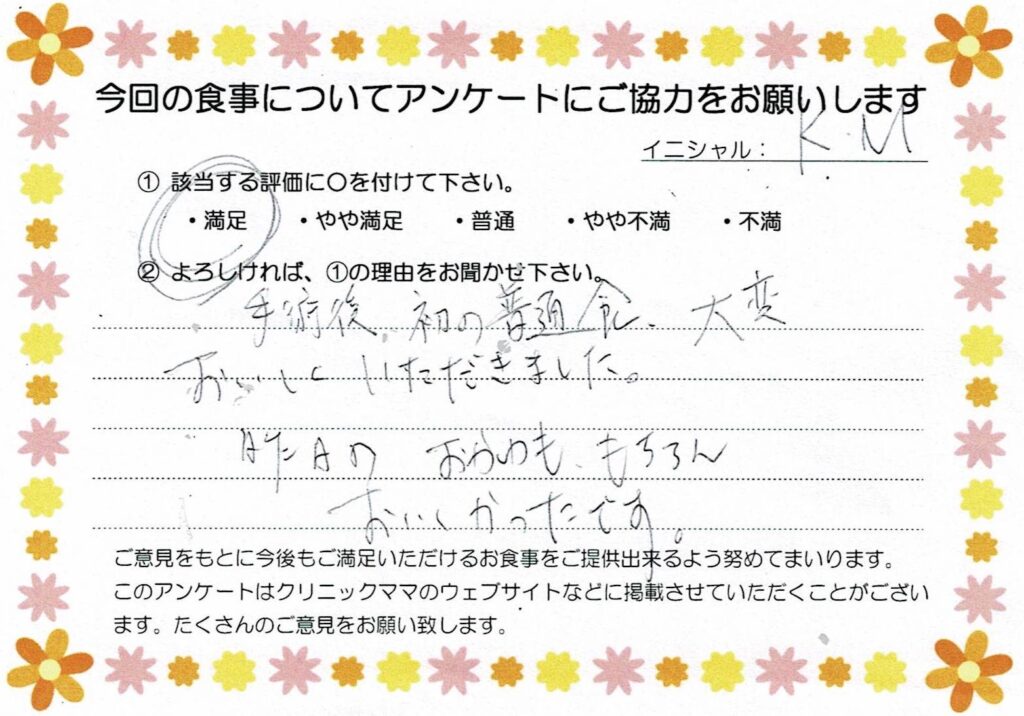 今回の食事についてアンケートにご協力をお願いします
イニシャル： K.M
① 該当する評価に〇を付けて下さい。
・満足 ・やや満足 ・普通 ・やや不満 ・不満
② よろしければ、①の理由をお聞かせ下さい。
手術後、初の普通食、大変
おいしくいただきました。
昨日の おかゆも、もちろん
おいしかったです。
ご意見をもとに今後もご満足いただけるお食事をご提供出来るよう努めてまいります。
このアンケートはクリニックママのウェブサイトなどに掲載させていただくことがござい
ます。たくさんのご意見をお願い致します。